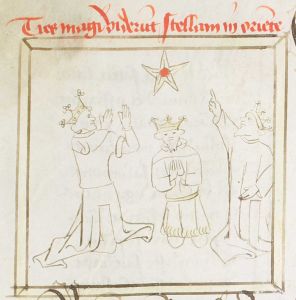 Tres magi viderunt stellam in oriente